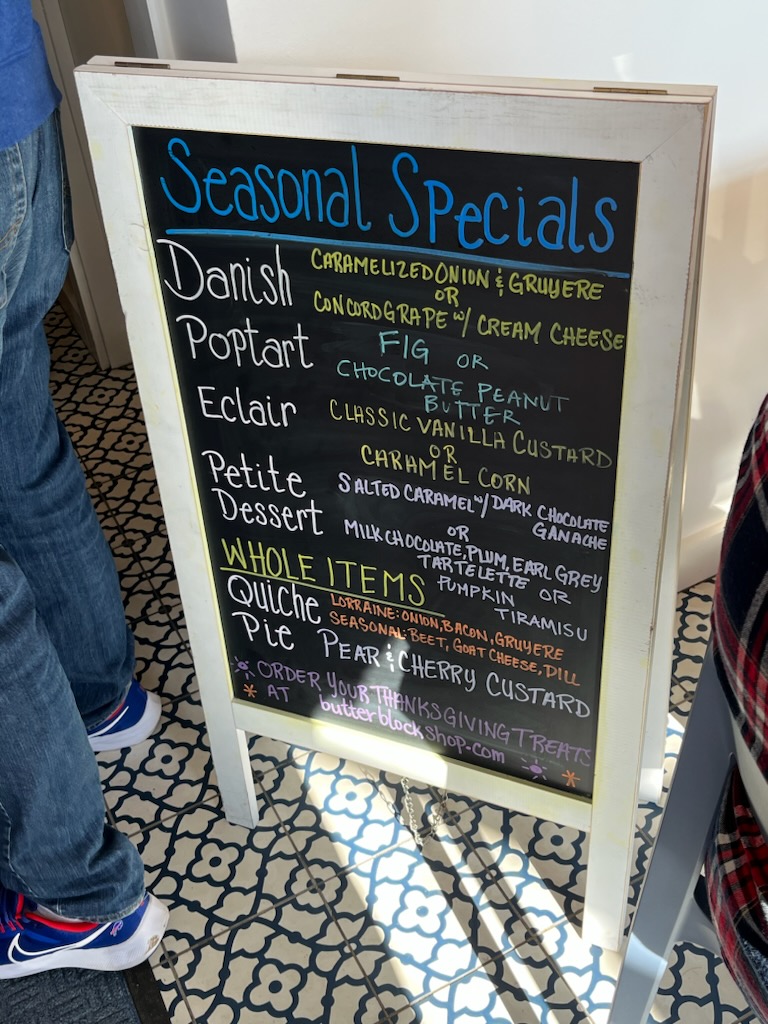 Seasonal Specials
Danish CARAMELIZED ONION & GRUYERE
OR
CONCORD GRAPE w/ CREAM CHEESE
Poptart FIG OR
CHOCOLATE PEANUT
BUTTER
Eclair CLASSIC VANILLA CUSTARD
OR
CARAMEL CORN
Petite SALTED CARAMEL w/ DARK CHOCOLATE
GANACHE
Dessert OR
MILK CHOCOLATE, PLUM, EARL GREY
TARTELETTE OR
PUMPKIN
TIRAMISU
WHOLE ITEMS
Quiche LORRAINE: ONION, BACON, GRUYERE
SEASONAL: BEET, GOAT CHEESE, DILL
Pie PEAR & CHERRY CUSTARD
ORDER YOUR THANKSGIVING TREATS
AT butterblockshop.com